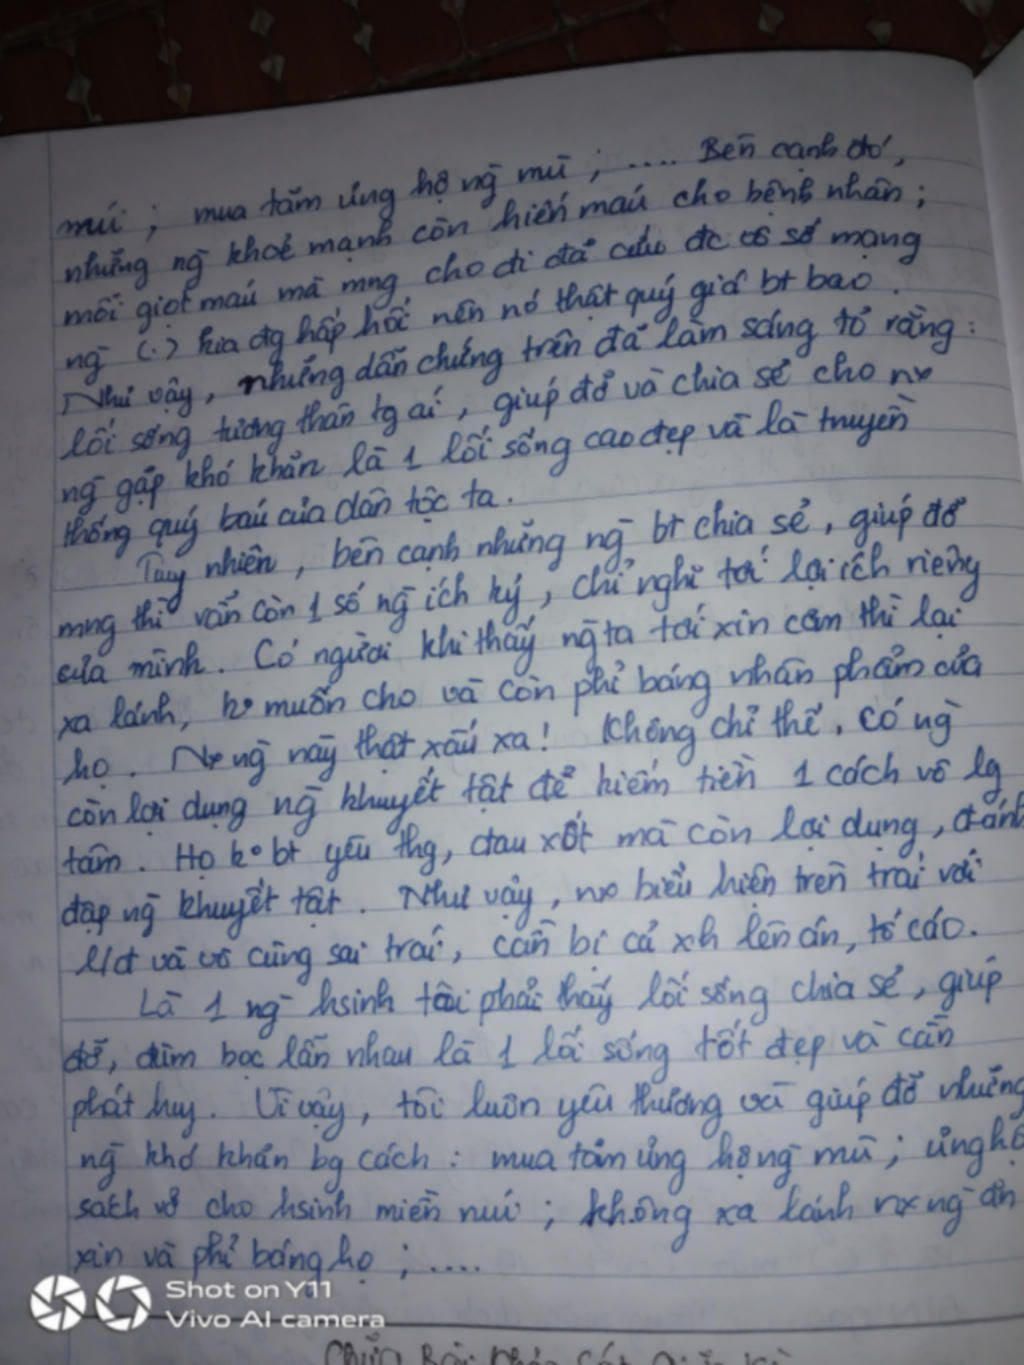 núi ; mua tăm ủng hộ ng̀ mù ; .... Bên cạnh đó,
những ng̀ khoẻ mạnh còn hiến máu cho bệnh nhân ;
mỗi giọt máu mà mng cho đi đã cứu đc số mạng
ng̀ (.) đg hấp hối nên nó thật quý giá bt bao.
Như vậy, những dẫn chứng trên đã làm sáng tỏ rằng:
lối sống tương thân tg ái, giúp đỡ và chia sẻ cho nx
ng̀ gặp khó khăn là 1 lối sống cao đẹp và là truyền
thống quý báu của dân tộc ta.
Tuy nhiên, bên cạnh những ng̀ bt chia sẻ, giúp đỡ
mng thì vẫn còn 1 số ng̀ ích kỷ, chỉ nghĩ tới lợi ích riêng
của mình. Có người khi thấy ng̀ ta tới xin cơm thì lại
xa lánh, ko muốn cho và còn phỉ báng nhân phẩm của
họ. Nx ng̀ này thật xấu xa! Không chỉ thế, có ng̀
còn lợi dụng ng̀ khuyết tật để kiếm tiền 1 cách vô lg
tâm. Họ ko bt yêu thg, đau xót mà còn lợi dụng, đánh
đập ng̀ khuyết tật. Như vậy, nx biểu hiện trên trái với
l/đ và vô cùng sai trái, cần bị cả xh lên án, tố cáo.
Là 1 ng̀ hsinh tôi phải thấy lối sống chia sẻ, giúp
đỡ, đùm bọc lẫn nhau là 1 lối sống tốt đẹp và cần
phát huy. Vì vậy, tôi luôn yêu thương và giúp đỡ những
ng̀ khó khăn bg cách : mua tăm ủng hộ ng̀ mù ; ủng hộ
sách vở cho hsinh miền núi ; không xa lánh nx ng̀ ăn
xin và phỉ báng họ ; ....
Shot on Y11
Vivo AI camera